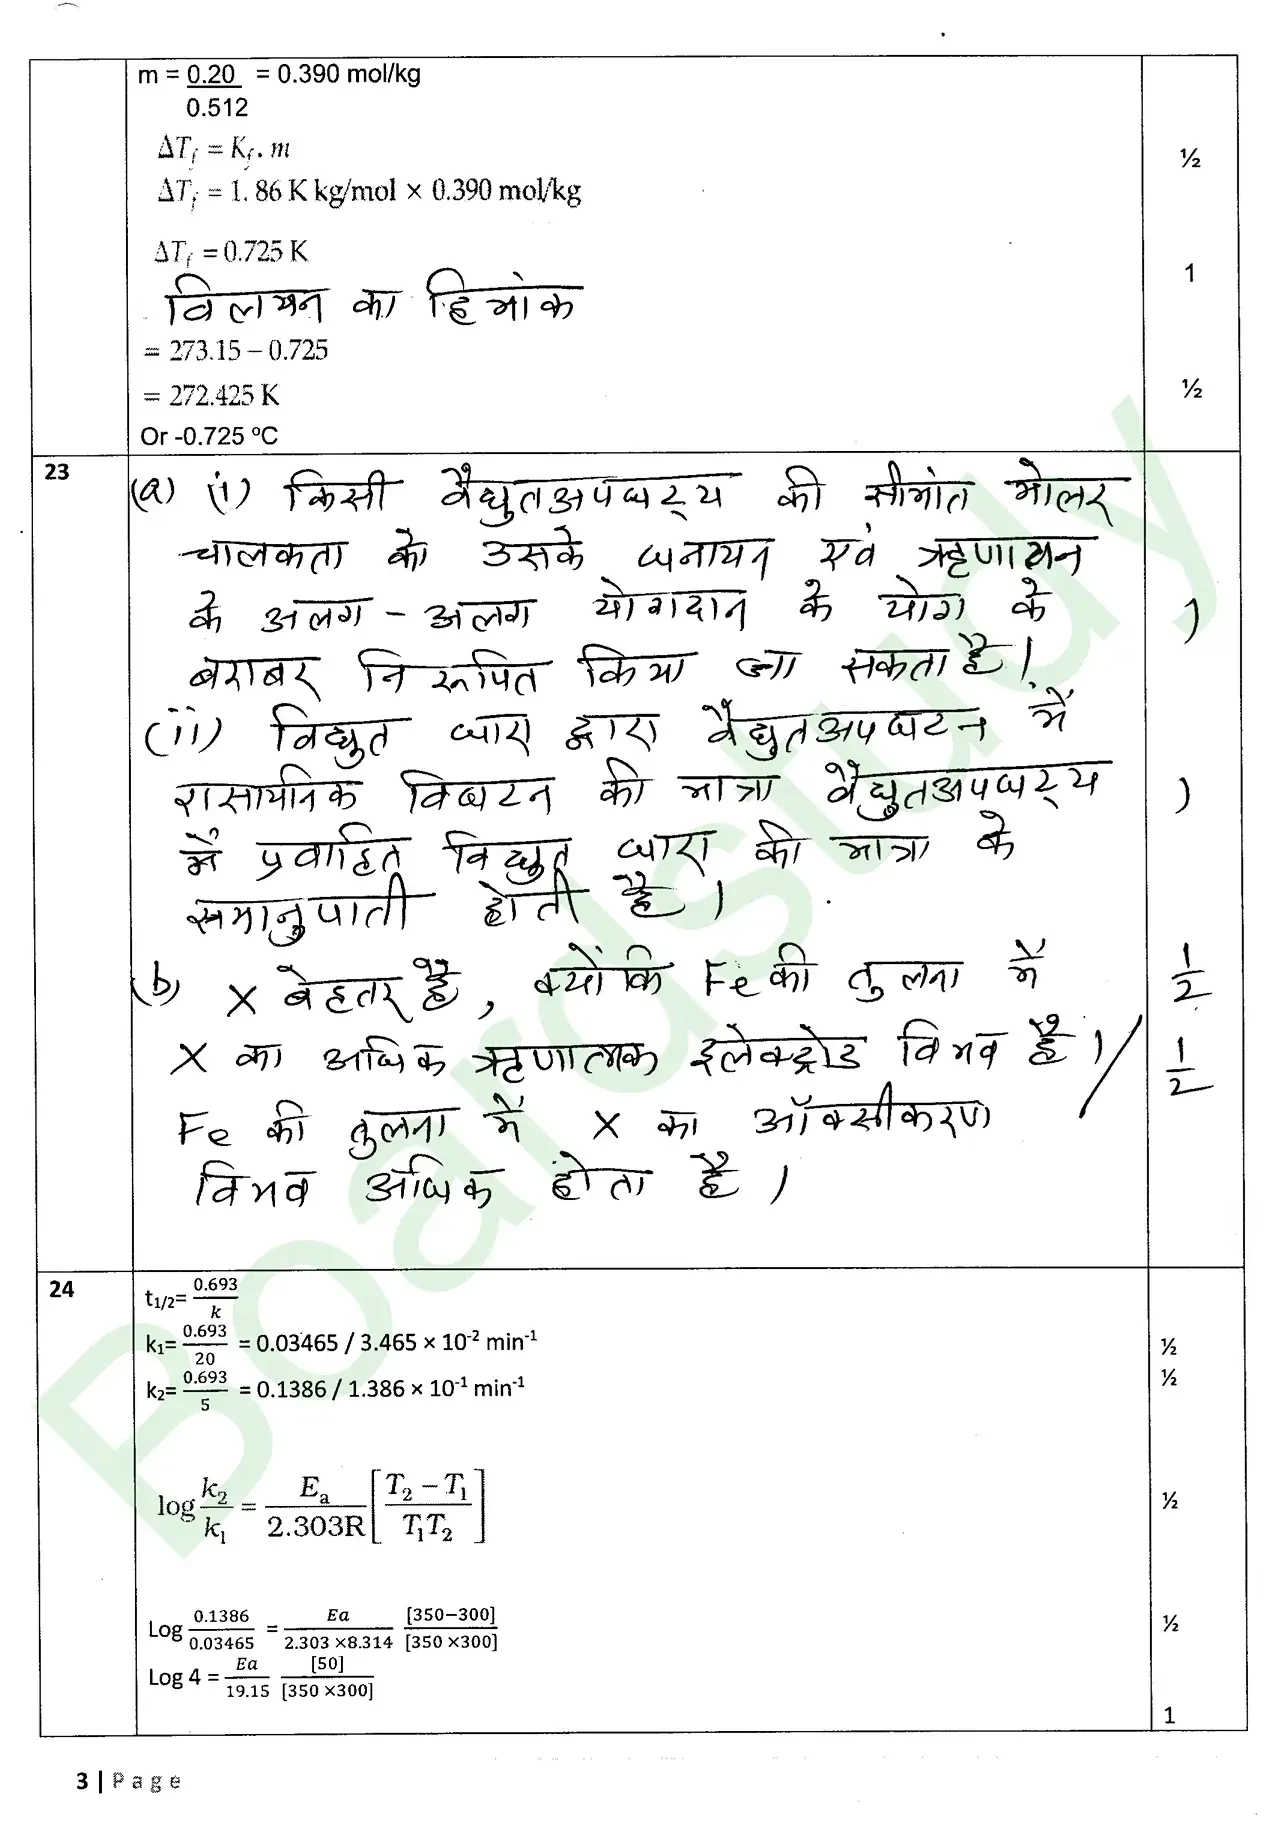 m = 0.20 = 0.390 mol/kg
0.512
ΔTf = Kf . m
½
ΔTf = 1.86 K kg/mol × 0.390 mol/kg
ΔTf = 0.725 K
1
विलयन का हिमांक
= 273.15 – 0.725
= 272.425 K
½
Or -0.725 ºC
23
(a) (i) किसी वैद्युतअपघट्य की सीमांत मोलर
चालकता को उसके धनायन एवं ऋणायन
के अलग - अलग योगदान के योग के
1
बराबर निरूपित किया जा सकता है।
(ii) विद्युत धारा द्वारा वैद्युतअपघटन में
रासायनिक विघटन की मात्रा वैद्युतअपघट्य
1
में प्रवाहित विद्युत धारा की मात्रा के
समानुपाती होती है।
(b) X बेहतर है, क्योंकि Fe की तुलना में
1/2
X का अधिक ऋणात्मक इलेक्ट्रोड विभव है। /
1/2
Fe की तुलना में X का ऑक्सीकरण
विभव अधिक होता है।
24
t1/2= 0.693/k
k1= 0.693/20 = 0.03465 / 3.465 × 10-2 min-1
½
k2= 0.693/5 = 0.1386 / 1.386 × 10-1 min-1
½
log k2/k1 = Ea/2.303R [T2 – T1/T1T2]
½
Log 0.1386/0.03465 = Ea/2.303 ×8.314 [350−300]/[350 ×300]
½
Log 4 = Ea/19.15 [50]/[350 ×300]
1
3 | Page
Boardstudy